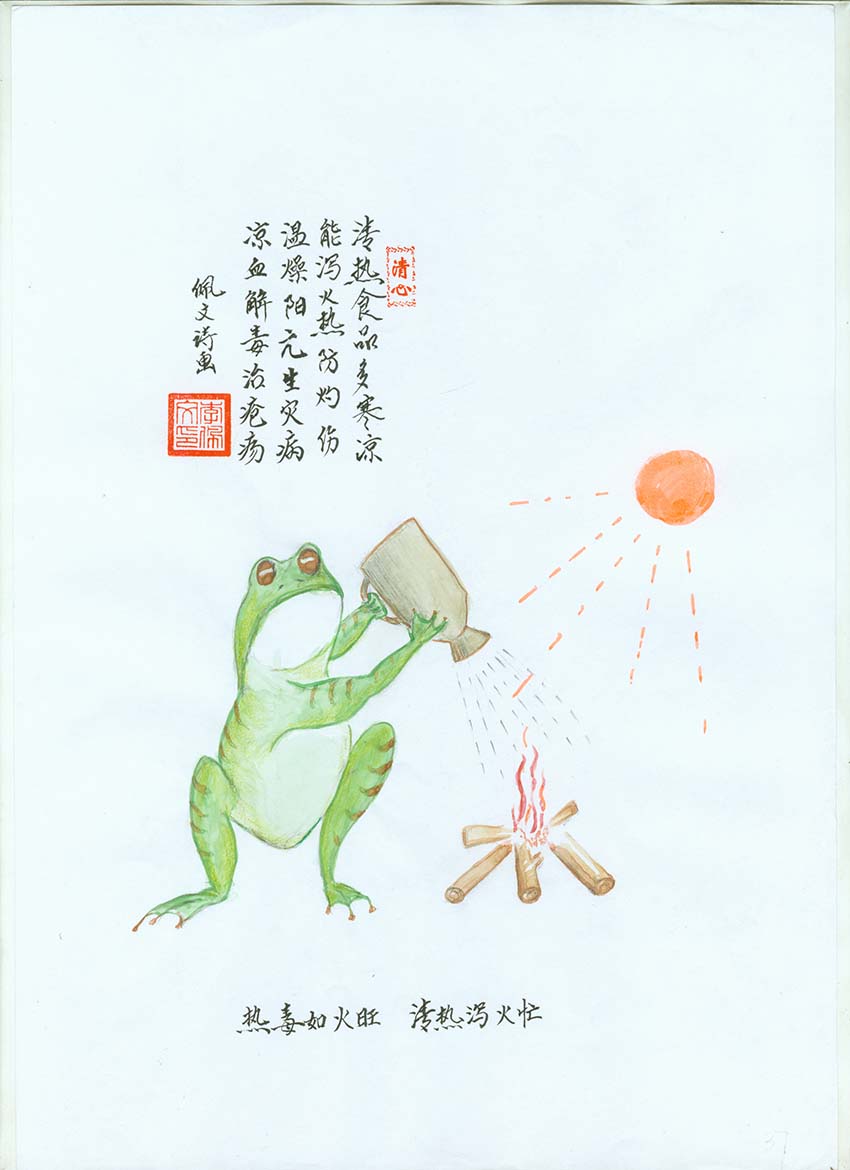 清心
清热食品多寒凉
能泻火热防灼伤
温燥阳亢生灾病
凉血解毒治疮疡
佩文诗画
李佩文印
热毒如火旺 清热泻火忙